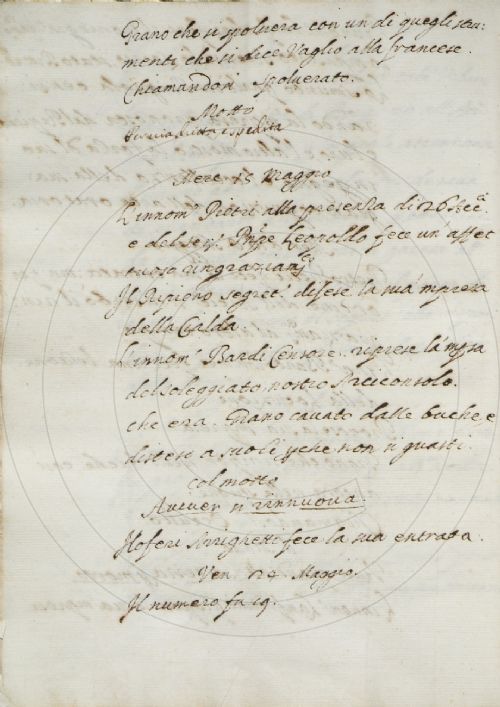 Grano che si spoluera con un di quegli stru-
menti che si dice Vaglio alla francese.
Chiamandosi spoluerato.
Motto
espedita
Merc. 15 Maggio
L'innom.º Pettri alla presenza di 26
e del Ser.º Prīpe Leopollo fece un'affet
tuoso ringraziam.to
Il Ripieno segret.º difese la sua impresa
della Cialda
L'innom.º Bardi Censore. riprese la
del soleggiato nostro Arciconsolo.
che era. Grano cauato dalle buche, e
disteso a suoli non si guasti.
col motto
si rinnuoua.
Arrighetti fece la sua entrata.
Ven. 24. Maggio.
Il numero fu 19.